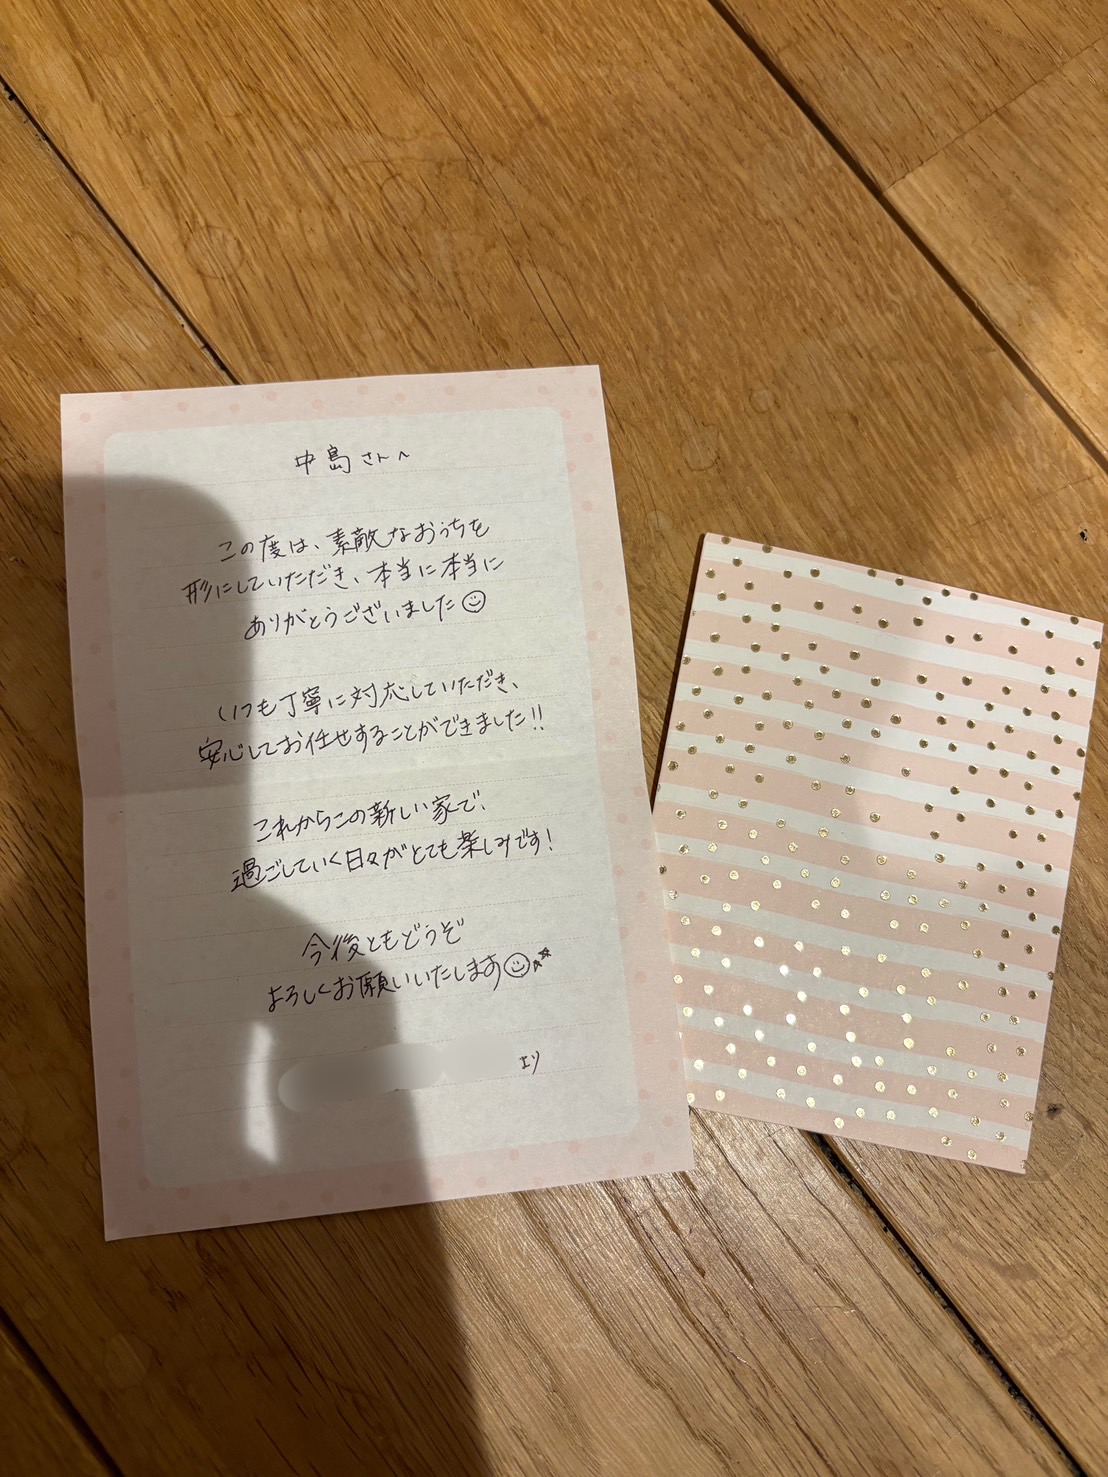 中島さんへ
この度は、素敵なおうちを
形にしていただき、本当に本当に
ありがとうございました
いつも丁寧に対応していただき、
安心してお任せすることができました!!
これからこの新しい家で、
過ごしていく日々がとても楽しみです!
今後ともどうぞ
よろしくお願いいたします
より